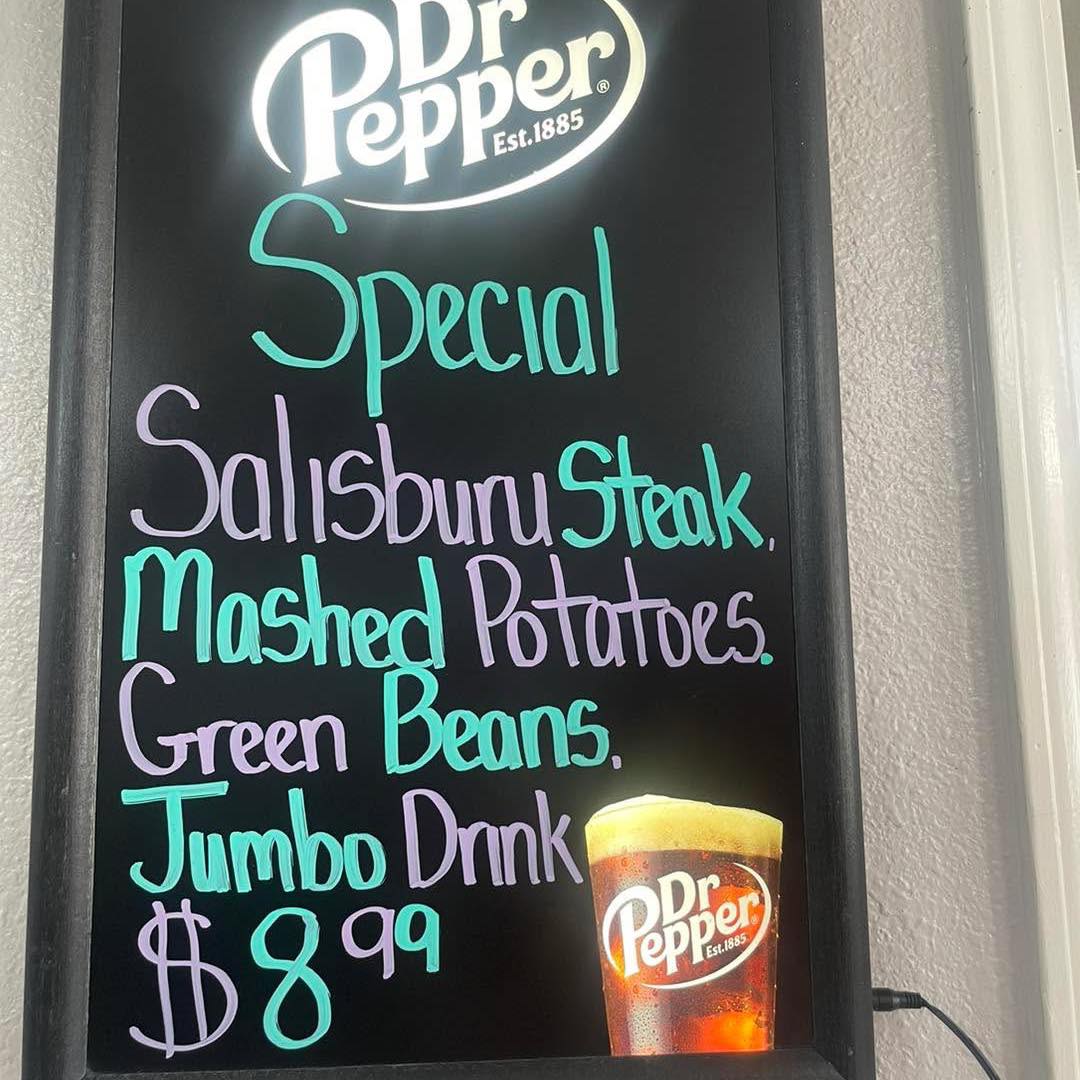 Dr
Pepper®
Est.1885
Special
Salisbury Steak,
Mashed Potatoes.
Green Beans,
Jumbo Drink
$8 99
Dr
Pepper®
Est.1885